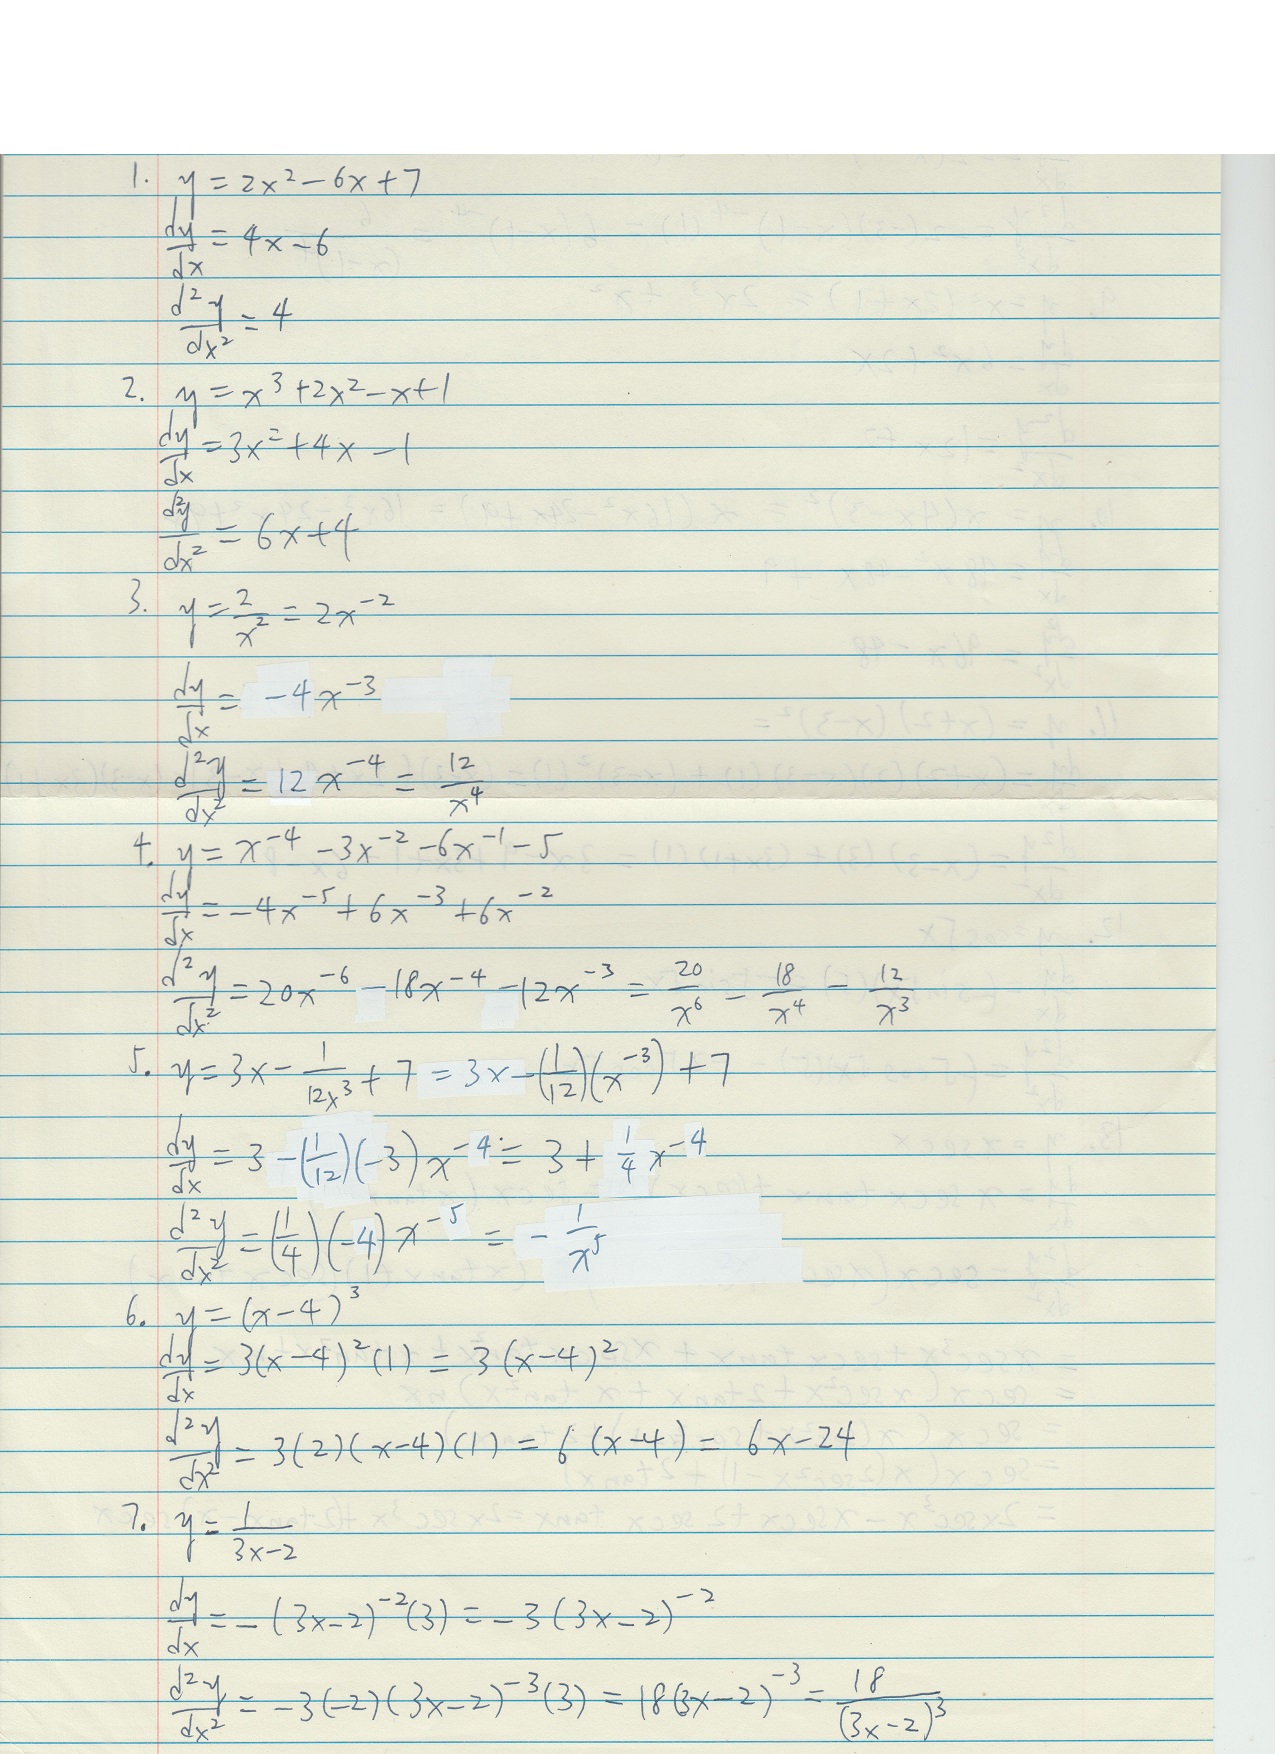 1. y = 2x² - 6x + 7
dy/dx = 4x - 6
d²y/dx² = 4
2. y = x³ + 2x² - x + 1
dy/dx = 3x² + 4x - 1
d²y/dx² = 6x + 4
3. y = 2/x² = 2x⁻²
dy/dx = -4x⁻³
d²y/dx² = 12x⁻⁴ = 12/x⁴
4. y = x⁻⁴ - 3x⁻² - 6x⁻¹ - 5
dy/dx = -4x⁻⁵ + 6x⁻³ + 6x⁻²
d²y/dx² = 20x⁻⁶ - 18x⁻⁴ - 12x⁻³ = 20/x⁶ - 18/x⁴ - 12/x³
5. y = 3x - 1/12x³ + 7 = 3x - (1/12)(x⁻³) + 7
dy/dx = 3 - (1/12)(-3)x⁻⁴ = 3 + 1/4 x⁻⁴
d²y/dx² = (1/4)(-4)x⁻⁵ = - 1/x⁵
6. y = (x-4)³
dy/dx = 3(x-4)²(1) = 3(x-4)²
d²y/dx² = 3(2)(x-4)(1) = 6(x-4) = 6x-24
7. y = 1/3x-2
dy/dx = -(3x-2)⁻²(3) = -3(3x-2)⁻²
d²y/dx² = -3(-2)(3x-2)⁻³(3) = 18(3x-2)⁻³ = 18/(3x-2)³